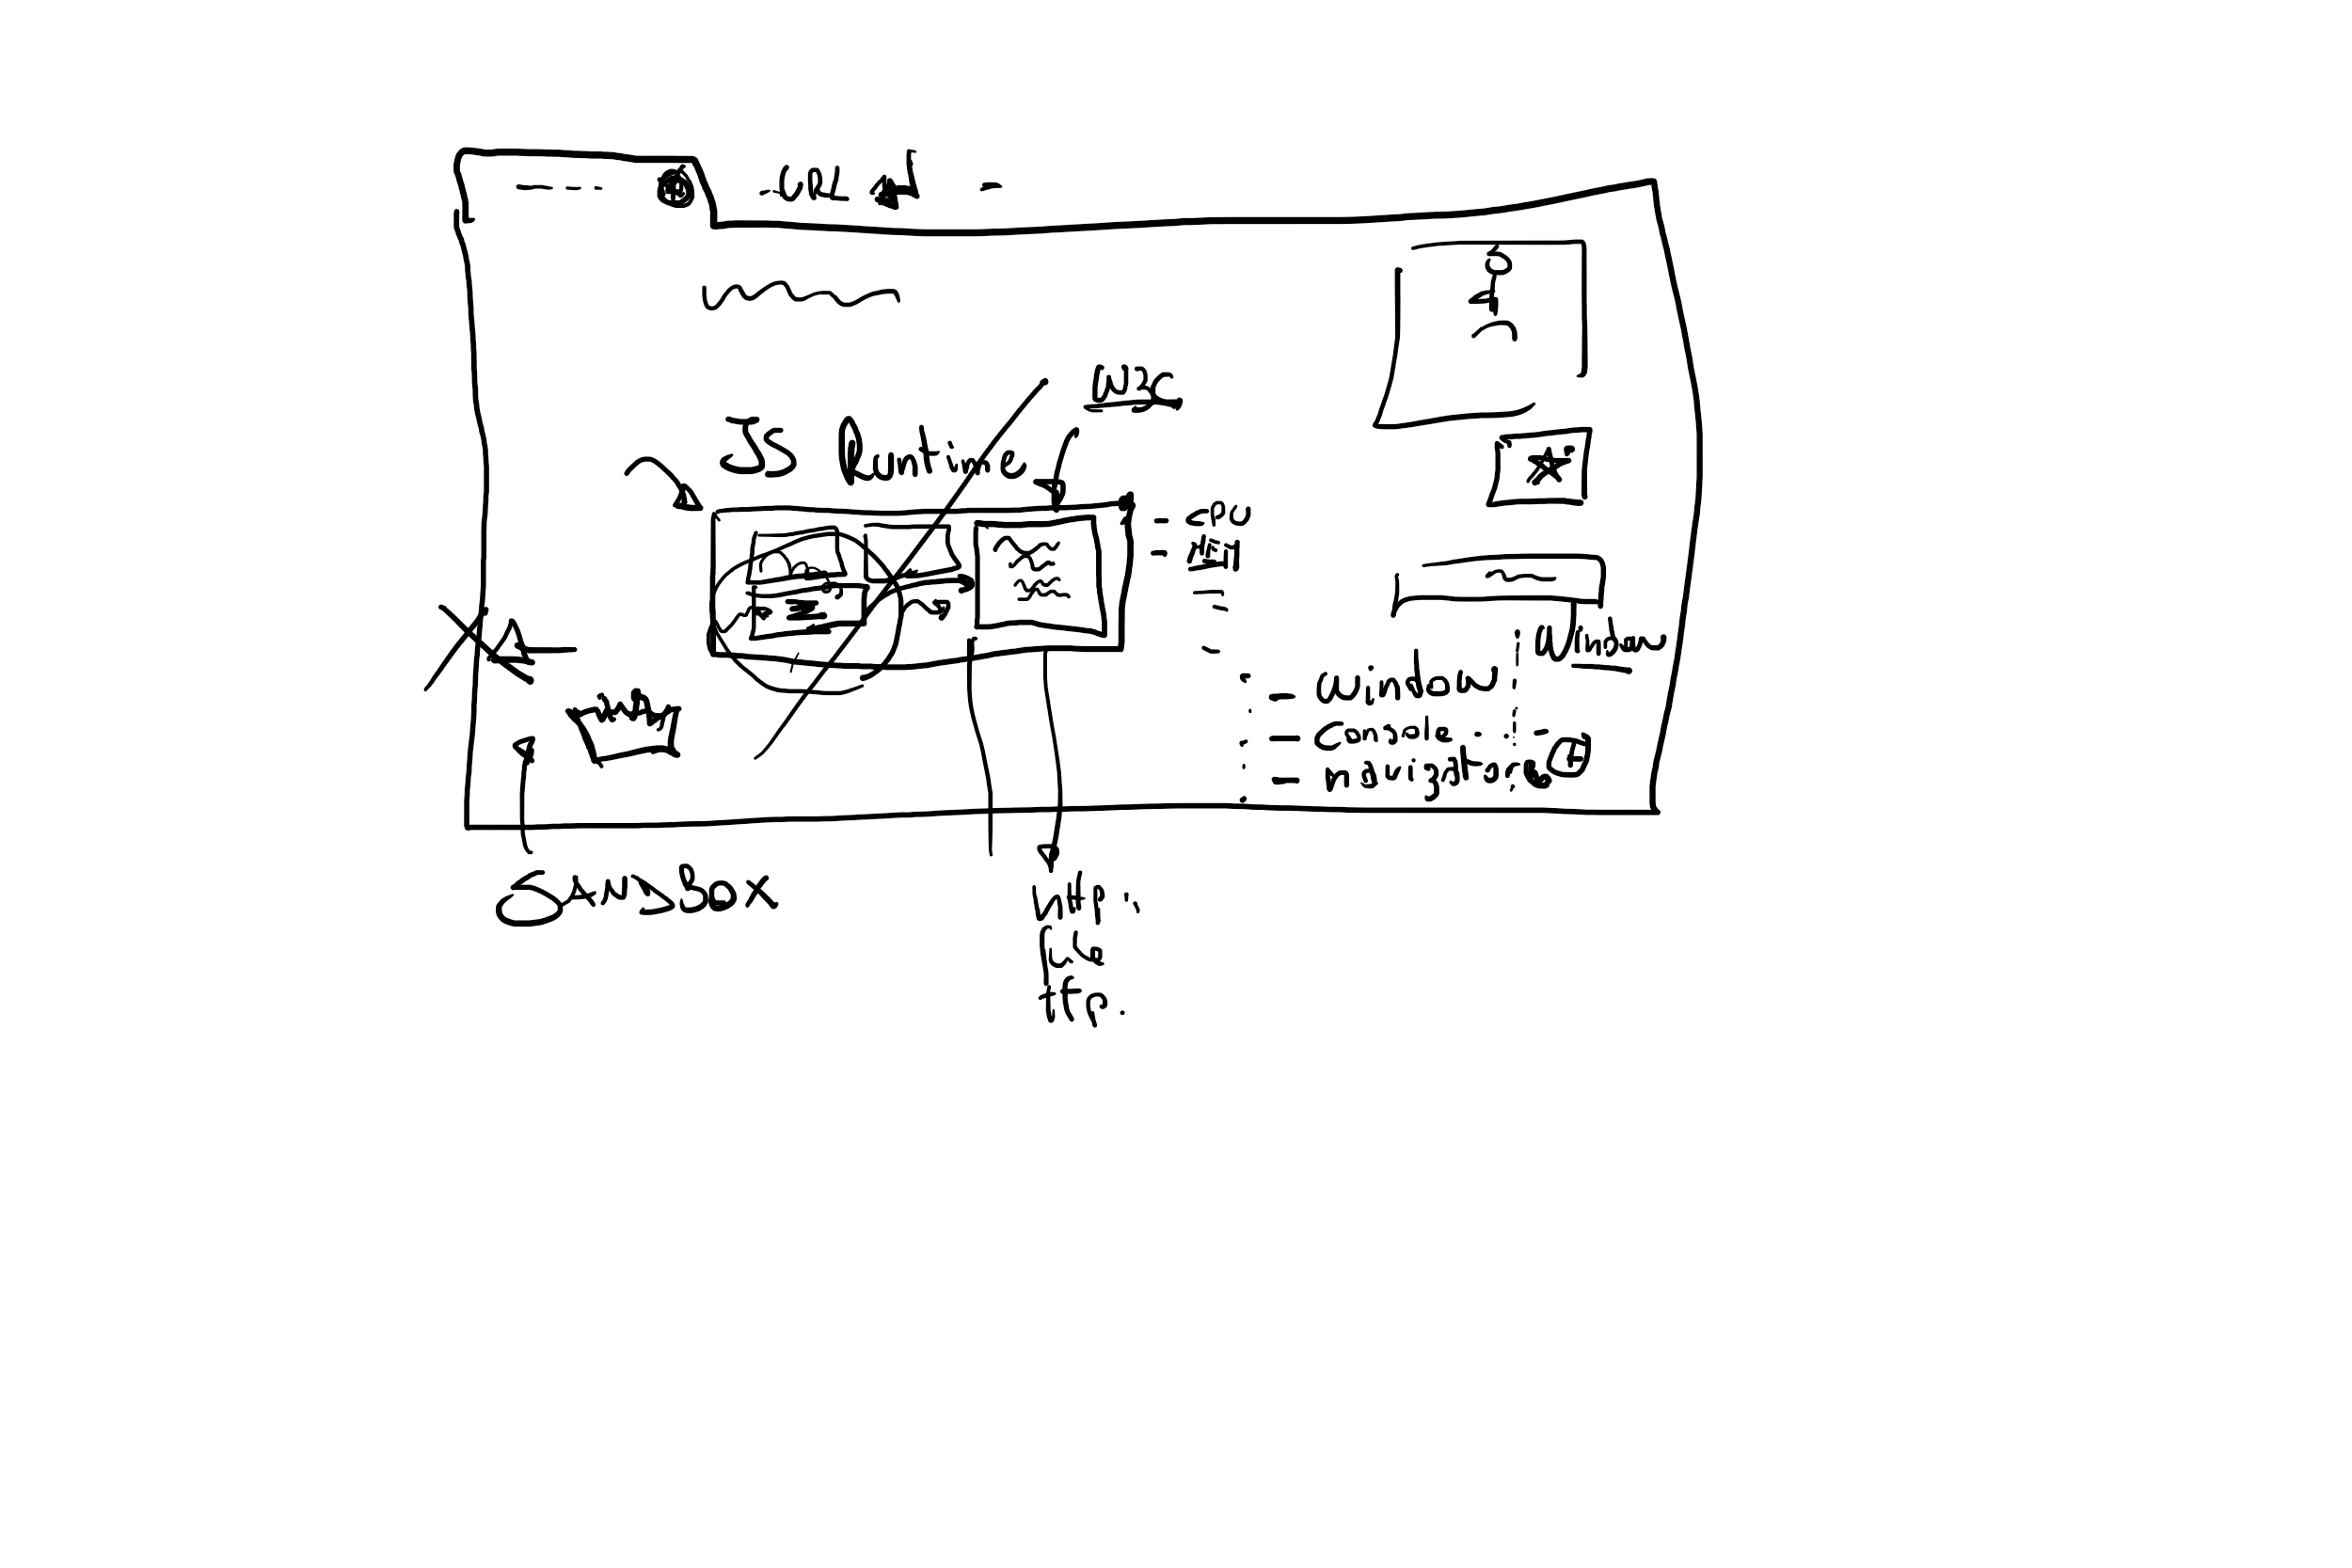 W3C
JS Runtime
Window
- window
- console
- navigator
SandBox
http:
ftp.